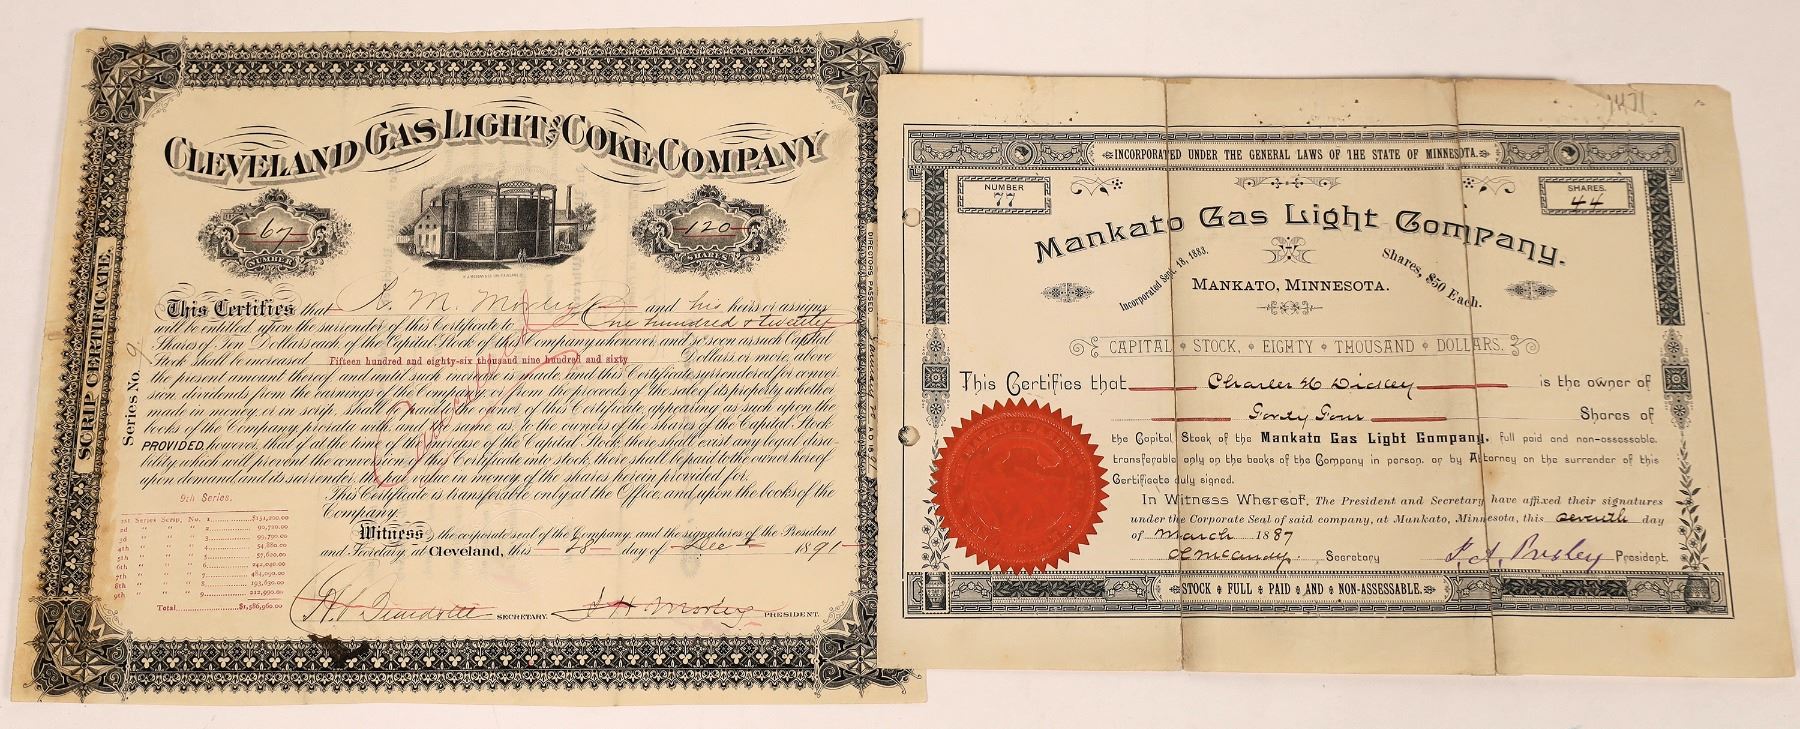 CLEVELAND GAS LIGHT AND COKE COMPANY
67
NUMBER
120
SHARES
SCRIP CERTIFICATE.
Series No. 9
DIRECTORS PASSED
This Certifies that L. M. and his heirs or assigns
will be entitled, upon the surrender of this Certificate to One hundred & twenty
Shares of Ten Dollars each, of the Capital Stock of this Company whenever, and so soon as such Capital
Stock shall be increased Fifteen hundred and eighty-six thousand nine hundred and sixty Dollars, or more, above
the present amount thereof and until such increase is made, and this Certificate surrendered for conver-
sion, dividends from the earnings of the Company, or from the proceeds of the sale of its property whether
made in money, or in scrip, shall be paid to the owner of this Certificate appearing as such upon the
books of the Company, prorata with and the same as, to the owners of the shares of the Capital Stock
PROVIDED, however, that if at the time of the increase of the Capital Stock, there shall exist any legal disa-
bility which will prevent the conversion of this Certificate into stock, there shall be paid to the owner hereof
upon demand, and its surrender, the full value in money of the shares herein provided for.
This Certificate is transferable only at the Office, and upon the books of the
Company.
Witness, the corporate seal of the Company, and the signatures of the President
and Secretary, at Cleveland, this 28 day of Dec 1891
SECRETARY. PRESIDENT.
9th Series.
1st Series Scrip, No. 1 $151,200.00
2d " " " 2 90,720.00
3d " " " 3 99,790.00
4th " " " 4 54,880.00
5th " " " 5 57,620.00
6th " " " 6 242,040.00
7th " " " 7 484,090.00
8th " " " 8 193,630.00
9th " " " 9 212,990.00
Total $1,586,960.00
INCORPORATED UNDER THE GENERAL LAWS OF THE STATE OF MINNESOTA.
NUMBER
77
SHARES.
44
Mankato Gas Light Company.
Incorporated Sept. 18, 1883.
MANKATO, MINNESOTA.
Shares, $50 Each.
CAPITAL STOCK, EIGHTY THOUSAND DOLLARS.
This Certifies that Charles H Dickey is the owner of
Forty Four Shares of
the Capital Stock of the Mankato Gas Light Company, full paid and non-assessable.
transferable only on the books of the Company in person, or by Attorney on the surrender of this
Certificate duly signed.
In Witness Whereof, The President and Secretary have affixed their signatures
under the Corporate Seal of said company, at Mankato, Minnesota, this seventh day
of March 1887
Secretary President.
STOCK FULL PAID AND NON-ASSESSABLE.